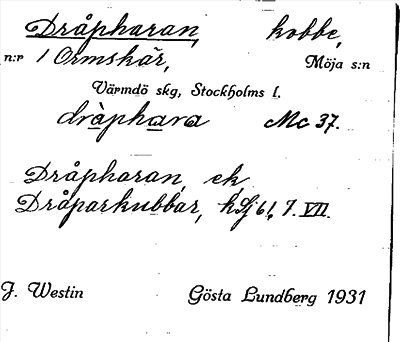 Dråpharan, kobbe,
n:r 1 Ormskär, Möja s:n
Värmdö skg, Stockholms l.
dràphara Mc 37.
Dråpharan, ek,
Dråparkubbar, hSj 61, 7. VII.
J. Westin Gösta Lundberg 1931